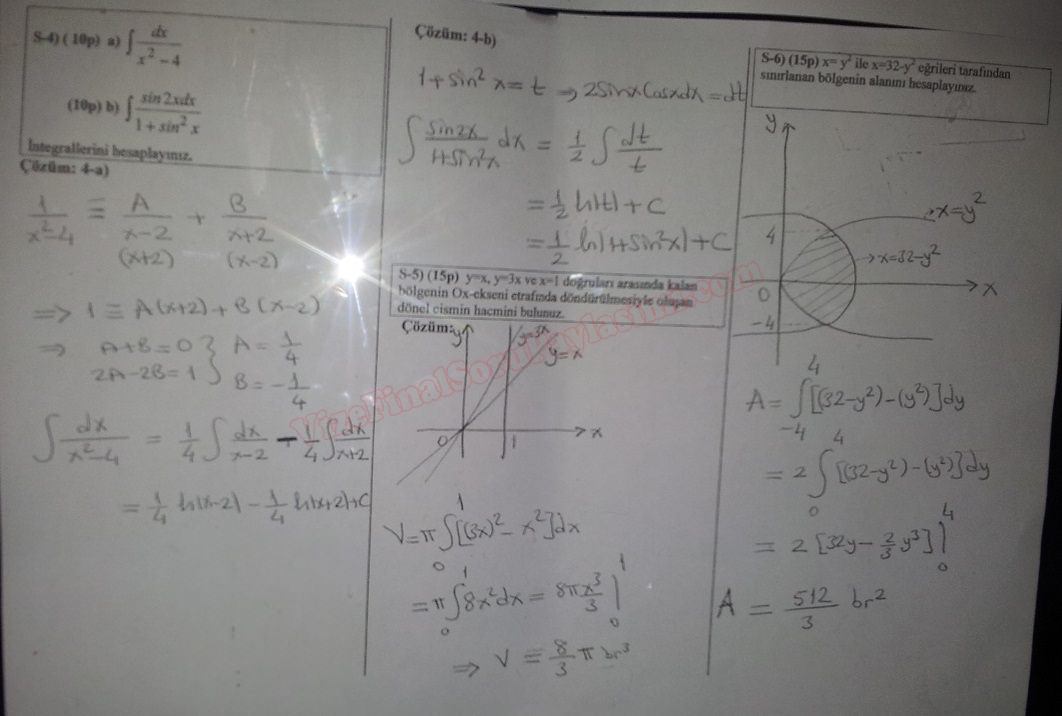 S-4) ( 10p) a) ∫ dx / (x² – 4)
(10p) b) ∫ sin 2xdx / (1 + sin² x)
İntegrallerini hesaplayınız.
Çözüm: 4-a)
1/(x²-4) ≡ A/(x-2) + B/(x+2)
(x+2) (x-2)
⇒ 1 ≡ A(x+2) + B(x-2)
⇒ A+B=0 } A = 1/4
2A-2B=1 } B = -1/4
∫ dx/(x²-4) = 1/4 ∫ dx/(x-2) - 1/4 ∫ dx/(x+2)
= 1/4 ln|x-2| - 1/4 ln|x+2|+C
Çözüm: 4-b)
1+sin² x = t ⇒ 2sinx Cosxdx = dt
∫ sin2x/(1+sin²x) dx = 1/2 ∫ dt/t
= 1/2 ln|t| + C
= 1/2 ln|1+sin²x| + C
S-5) (15p) y=x, y=3x ve x=1 doğruları arasında kalan
bölgenin Ox-ekseni etrafında döndürülmesiyle oluşan
dönel cismin hacmini bulunuz.
Çözüm:
y
y=3x
y=x
0 1 x
V = π ∫₀¹ [(3x)² - x²]dx
= π ∫₀¹ 8x²dx = 8πx³/3 |₀¹
⇒ V = 8/3 π br³
S-6) (15p) x= y² ile x=32-y² eğrileri tarafından
sınırlanan bölgenin alanını hesaplayınız.
y
→x=y²
4
→x=32-y²
0 x
-4
A = ∫₋₄⁴ [(32-y²)-(y²)]dy
= 2 ∫₀⁴ [(32-y²)-(y²)]dy
= 2 [32y - 2/3 y³] |₀⁴
A = 512/3 br²
VizeFinalSoruPaylasimi.com